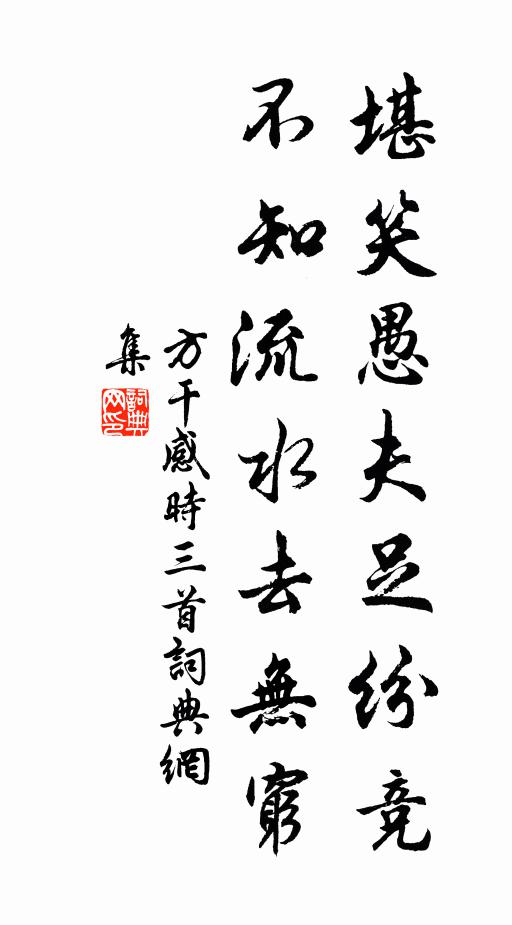 堪笑愚夫足纷竞
不知流水去無窮
方干感時三首詞典網
集
詞典
网印